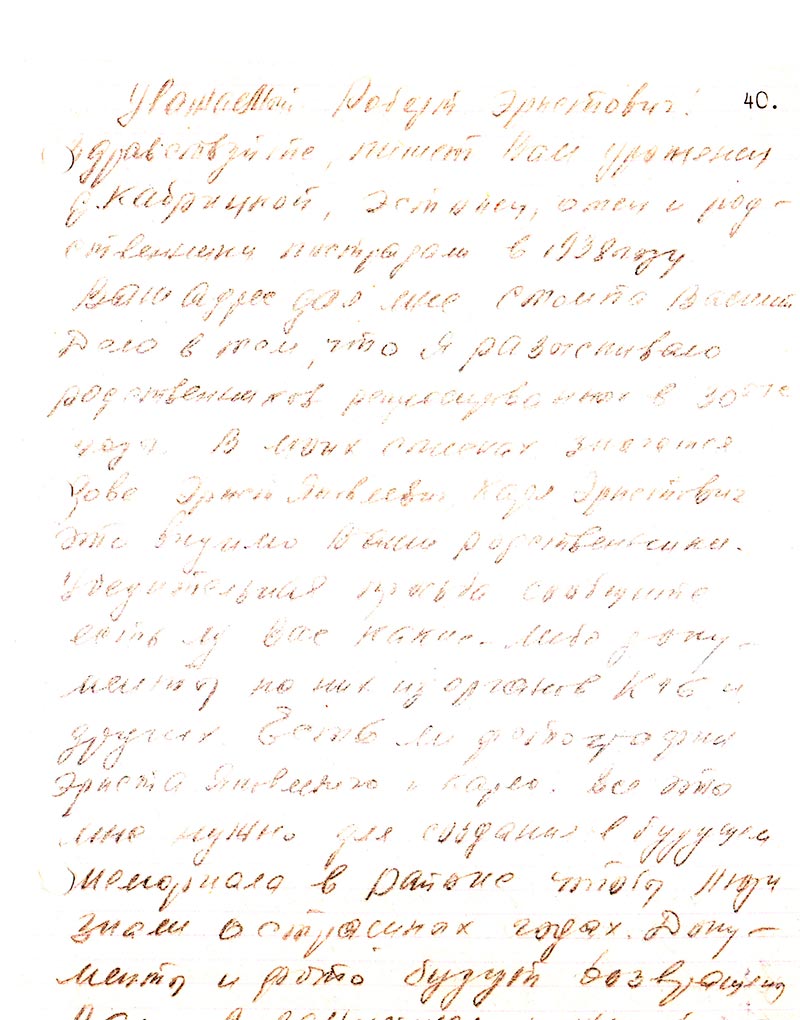 Уважаемый Роберт Эрнестович! 40.
Здравствуйте, пишет Вам уроженец
д. Кабрицкой, эстонец, отец и род-
ственники пострадали в 1938 году
Ваш адрес дал мне
Дело в том, что я разыскиваю
родственников репрессированных в 30ые
года. В моих списках значатся
Эрнст Яковлевич, Карл Эрнстович
это видимо Ваши родственники.
Убедительная просьба сообщите
есть ли у Вас какие-либо доку-
менты на них из органов КГБ и
других. Есть ли фотографии
Эрнста Яковлевича и Карла. Все это
мне нужно для создания в будущем
мемориала в районе чтобы люди
знали о страшных годах. Доку-
менты и фото будут возвращены